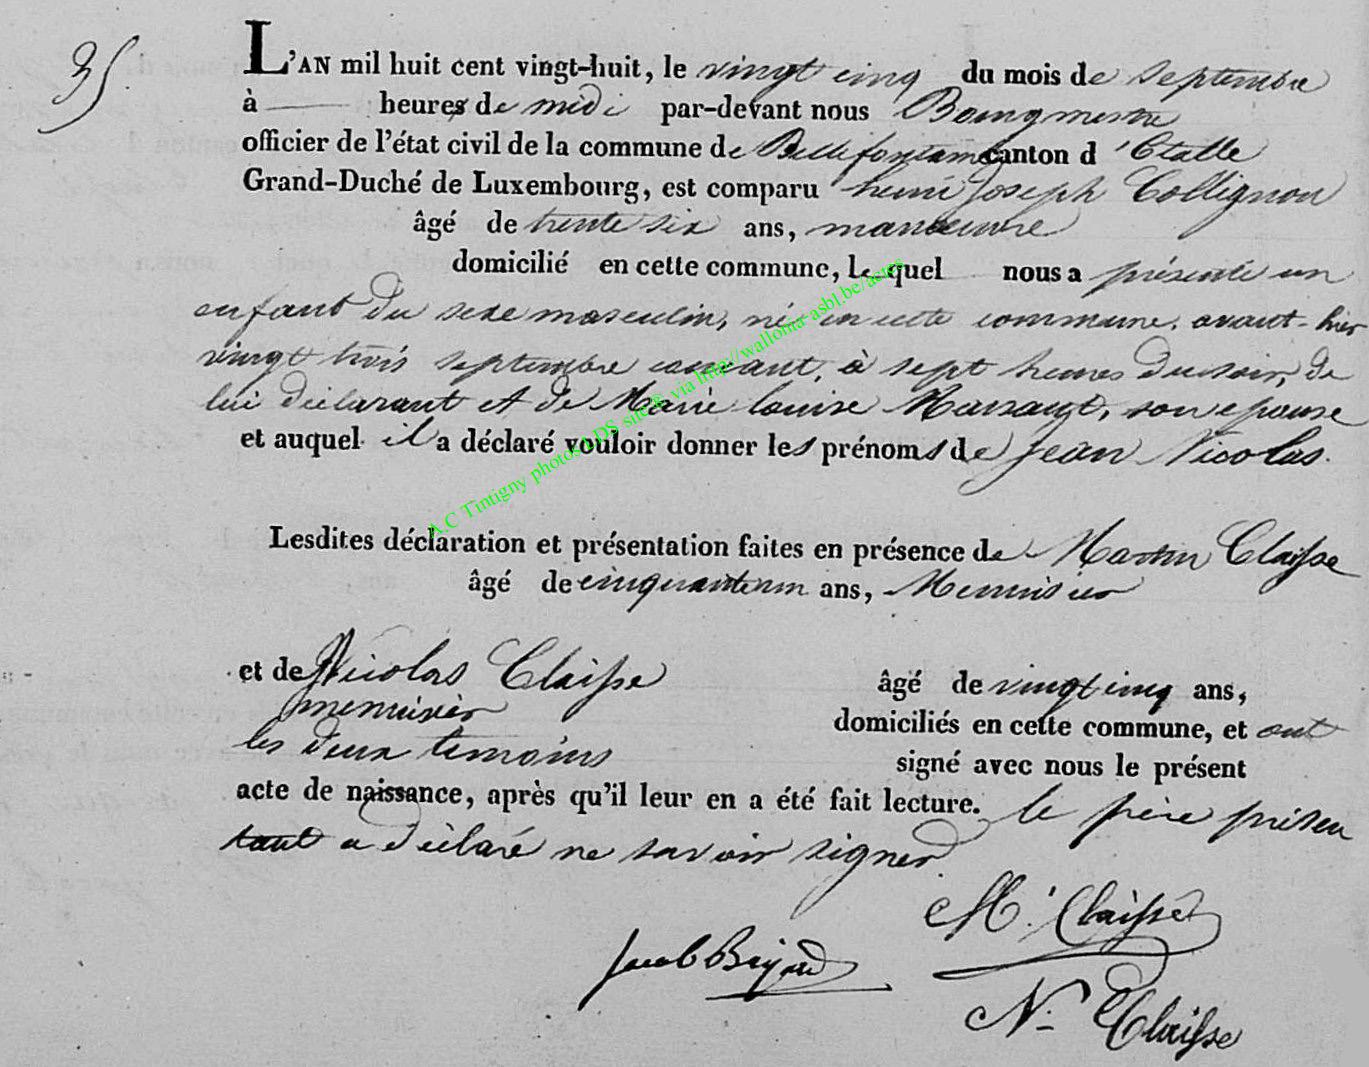 35.
L'AN mil huit cent vingt-huit, le vingt cinq du mois de Septembre
à heures de midi par-devant nous Bourgmestre
officier de l'état civil de la commune de Bellefontaine canton d'Etalle
Grand-Duché de Luxembourg, est comparu henri Joseph Collignon
âgé de trente six ans, manœuvre
domicilié en cette commune, lequel nous a présenté un
enfant du sexe masculin, né en cette commune, avant-hier
vingt trois septembre courant, à sept heures du soir, de
lui déclarant et de Marie louise, son épouse
et auquel il a déclaré vouloir donner les prénoms de jean Nicolas.
Lesdites déclaration et présentation faites en présence de Martin Claisse
âgé de cinquante un ans, Menuisier
et de Nicolas Claisse âgé de vingt cinq ans,
menuisier domiciliés en cette commune, et ont
les deux temoins signé avec nous le présent
acte de naissance, après qu'il leur en a été fait lecture. le père présen
tant a déclaré ne savoir signer.
M. Claisse
Jacob
N. Claisse
A.C Tintigny photos LDS site & via http://wallonia-asbl.be/actes